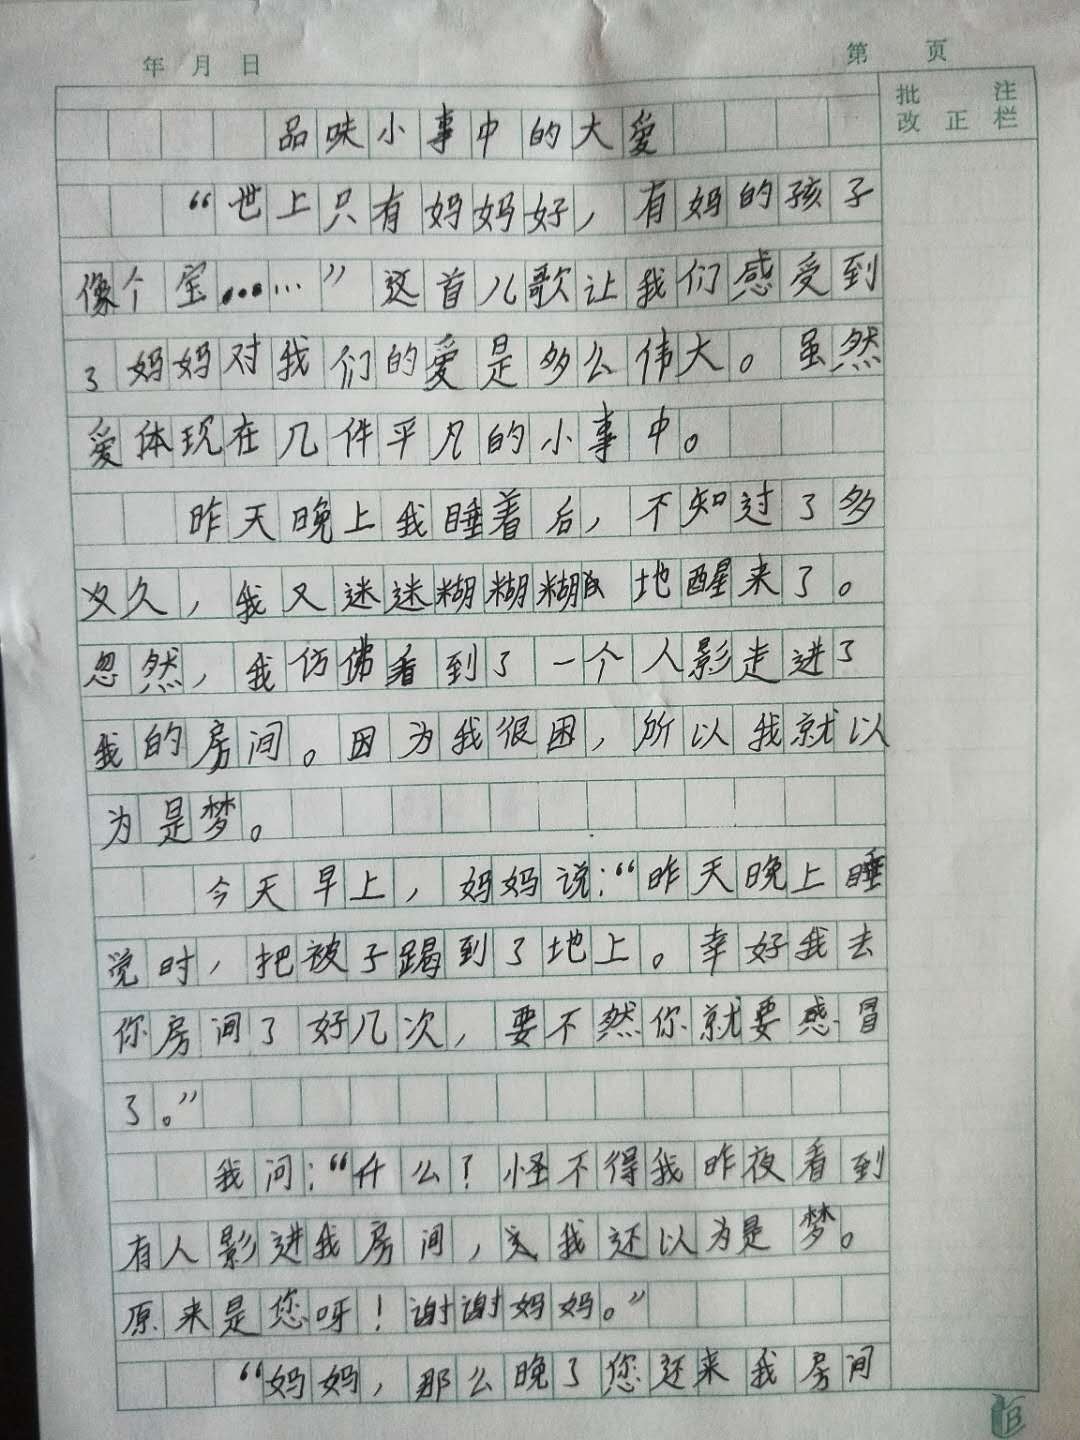 年 月 日
第 页
批 注
改 正 栏
品味小事中的大爱
“世上只有妈妈好，有妈的孩子
像个宝……”这首儿歌让我们感受到
了妈妈对我们的爱是多么伟大。虽然
爱体现在几件平凡的小事中。
昨天晚上我睡着后，不知过了多
久，我又迷迷糊糊糊地醒来了。
忽然，我仿佛看到了一个人影走进了
我的房间。因为我很困，所以我就以
为是梦。
今天早上，妈妈说：“昨天晚上睡
觉时，把被子踢到了地上。幸好我去
你房间了好几次，要不然你就要感冒
了。”
我问：“什么？怪不得我昨夜看到
有人影进我房间，我还以为是梦。
原来是您呀！谢谢妈妈。”
“妈妈，那么晚了您还来我房间